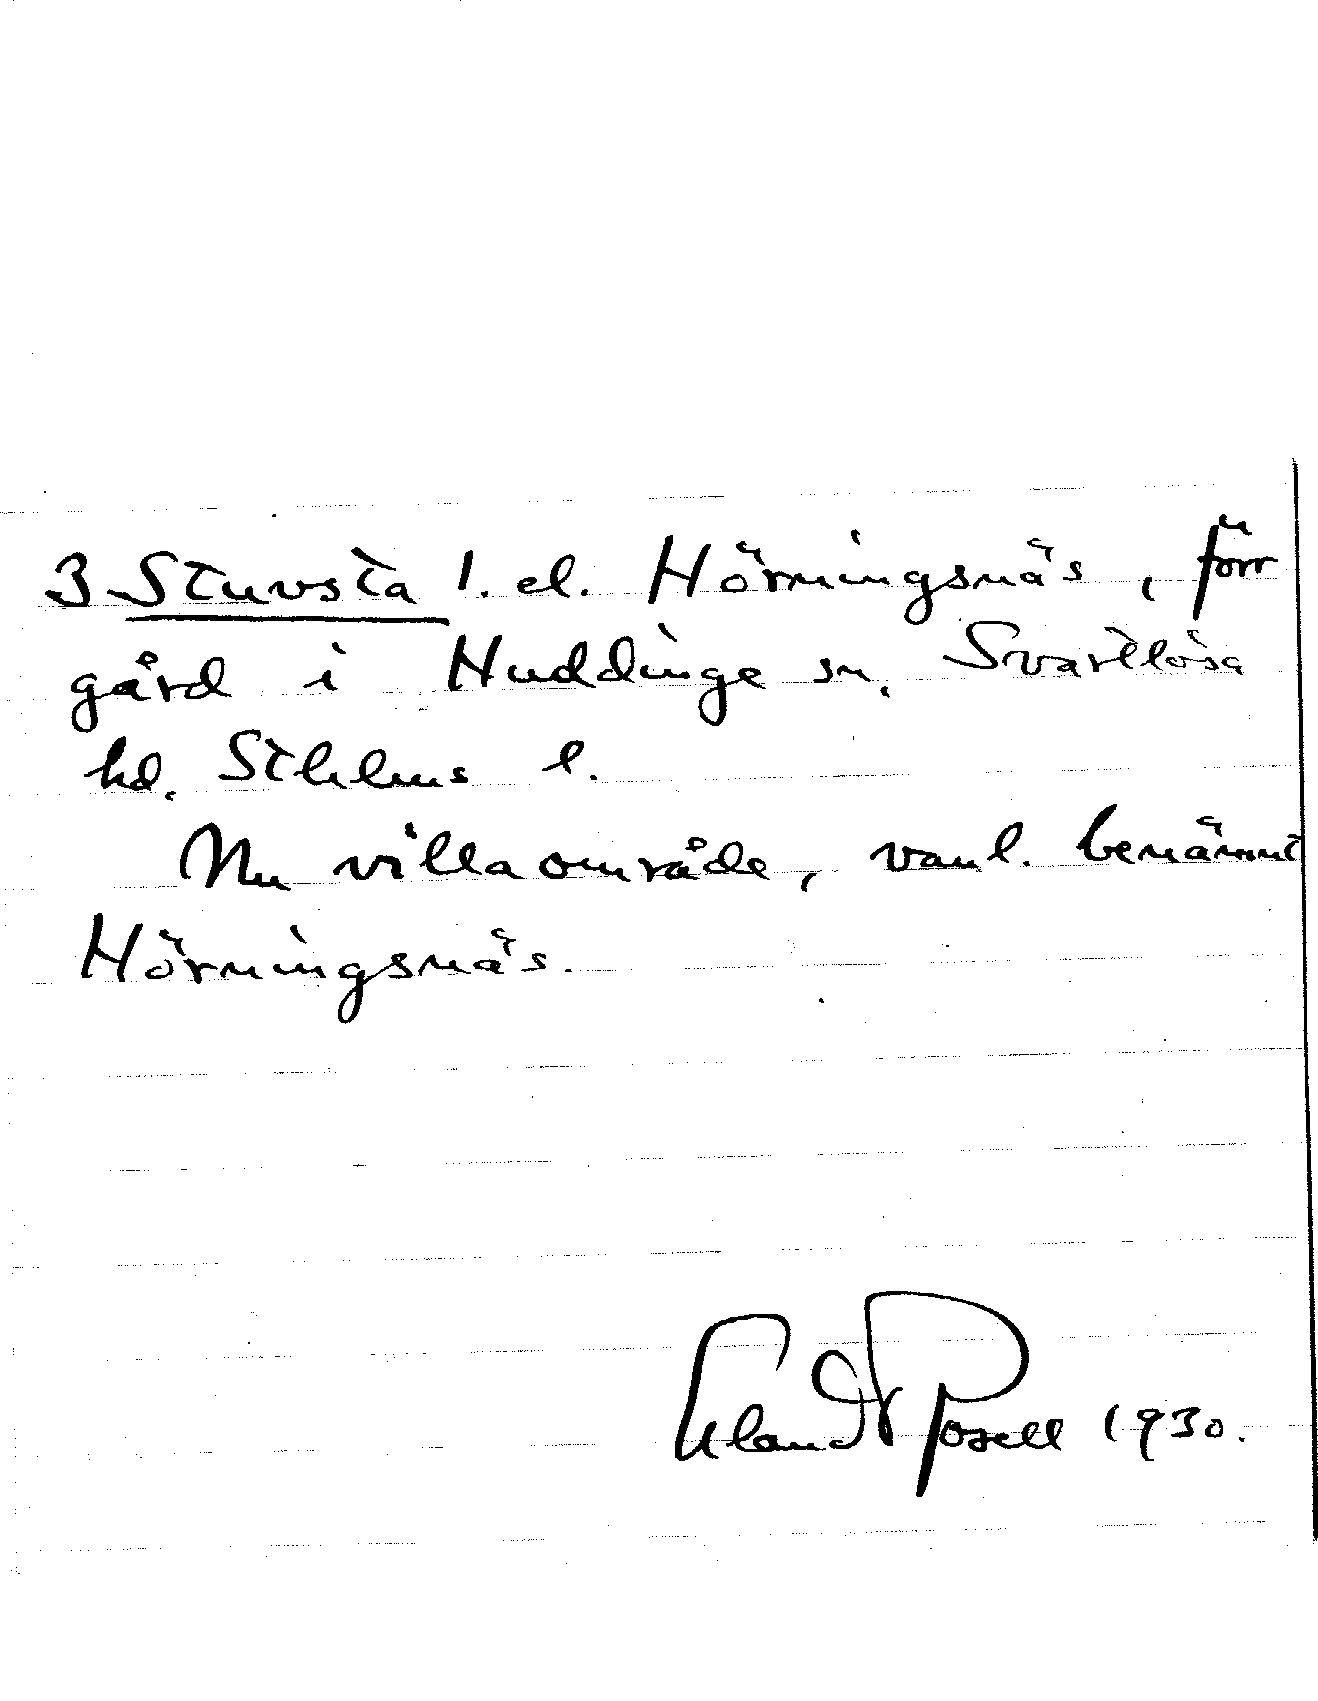 3 Stuvsta l. el. Hörningsnäs, förr
gård i Huddinge sn, Svartlösa
hd. Sthlms l.
Nu villaområde, vanl. benämnt
Hörningsnäs.
Erland Rosell 1930.